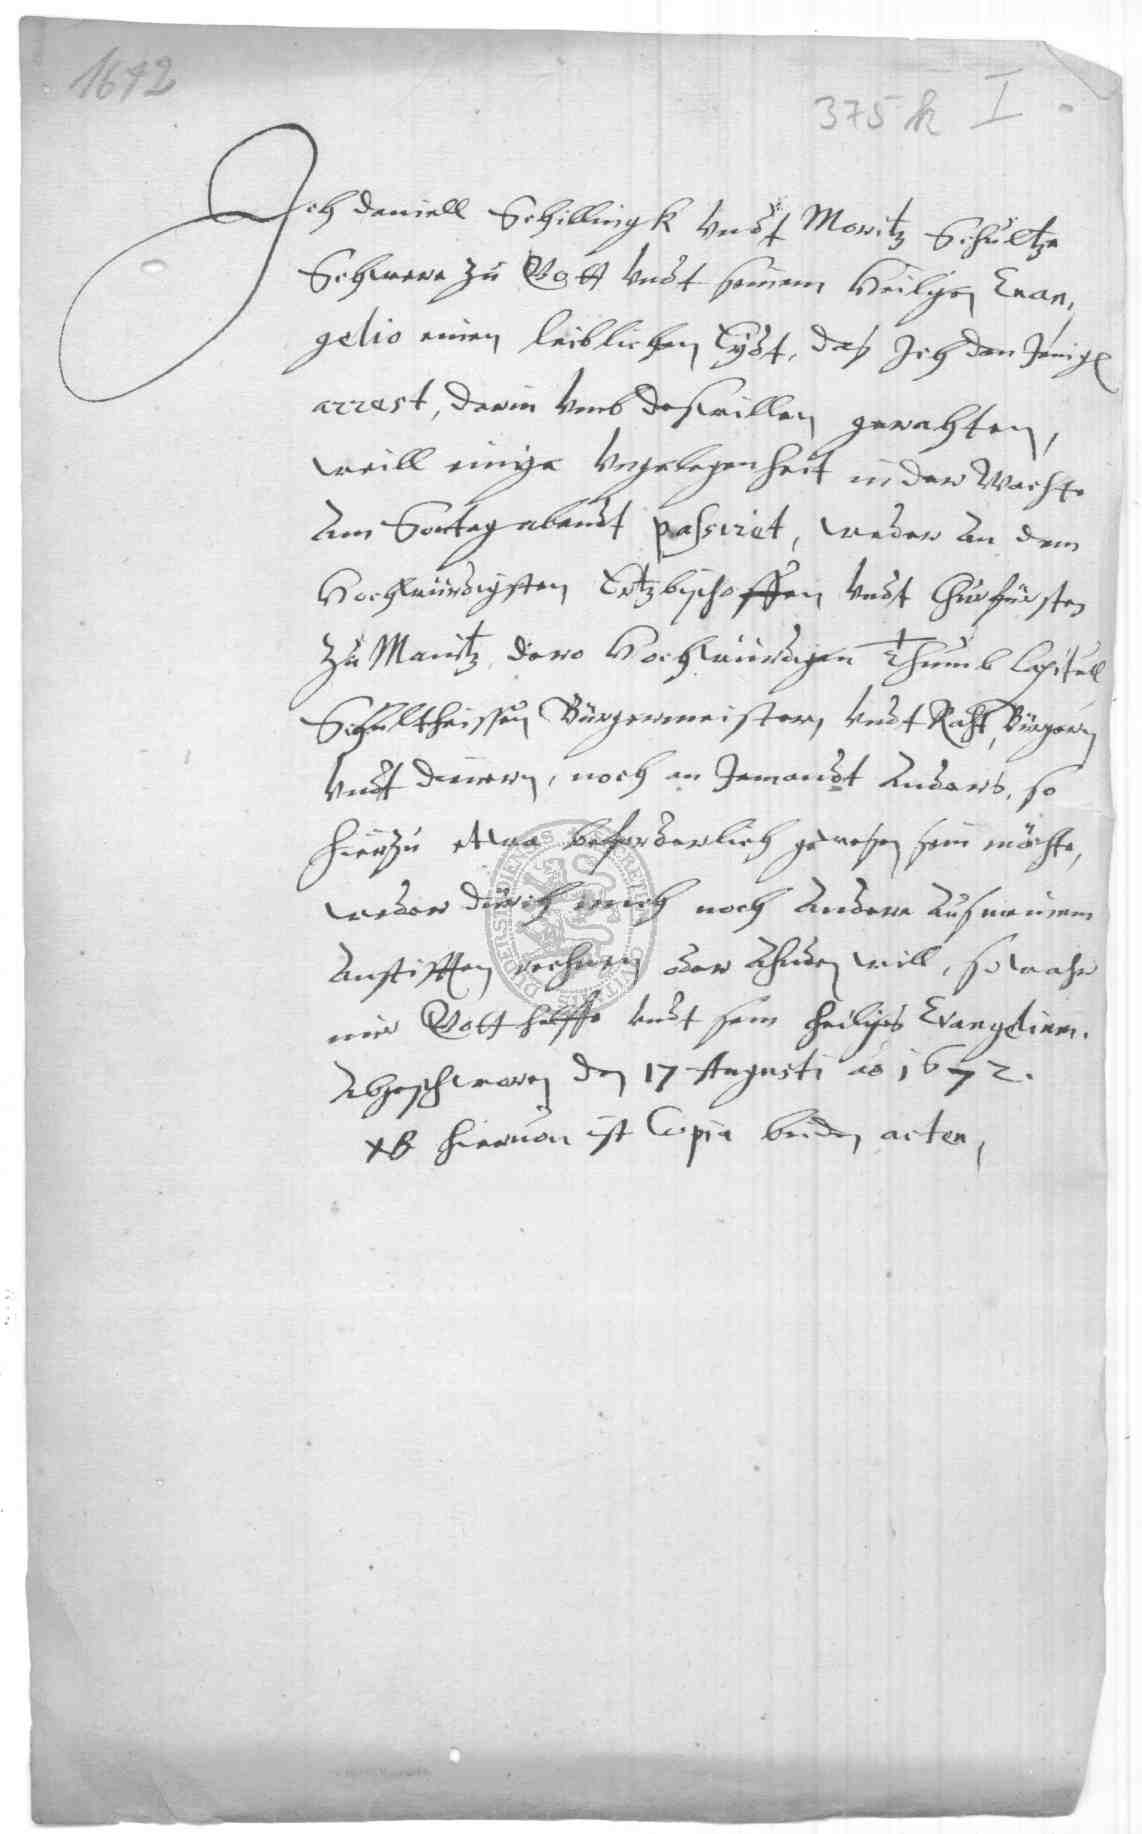 1672
375 k I
Ich Daniell Schillingk vndt Moritz Schultze
Schwere zu Gott vndt seinem Heiligen Evan,
gelio einen leiblichen Eydt, daß Ich den Jenigen
arrest, darin vmb deßwillen gerahten,
weill einige vngelegenheit in der Wachte
am Sontag abendt passiret, weder an dem
Hochwürdigsten Ertzbischoffen vndt Churfürsten
zu Maintz, dero Hochwürdigen Thumb Capitull
Schultheissen Bürgermeistern vndt Raht, Bürgern
vndt dienern, noch an Jemandt anders, so
hierzu etwa beforderlich gewesen sein möchte,
weder durch mich noch andere auß meinem
anstifften rechnen oder ahnden will, so wahr
mir Gott helffe vndt sein heiliges Evangelium.
Abgeschworen den 17 Augusti ao 1672.
NB hieruon ist Copia bei den acten,